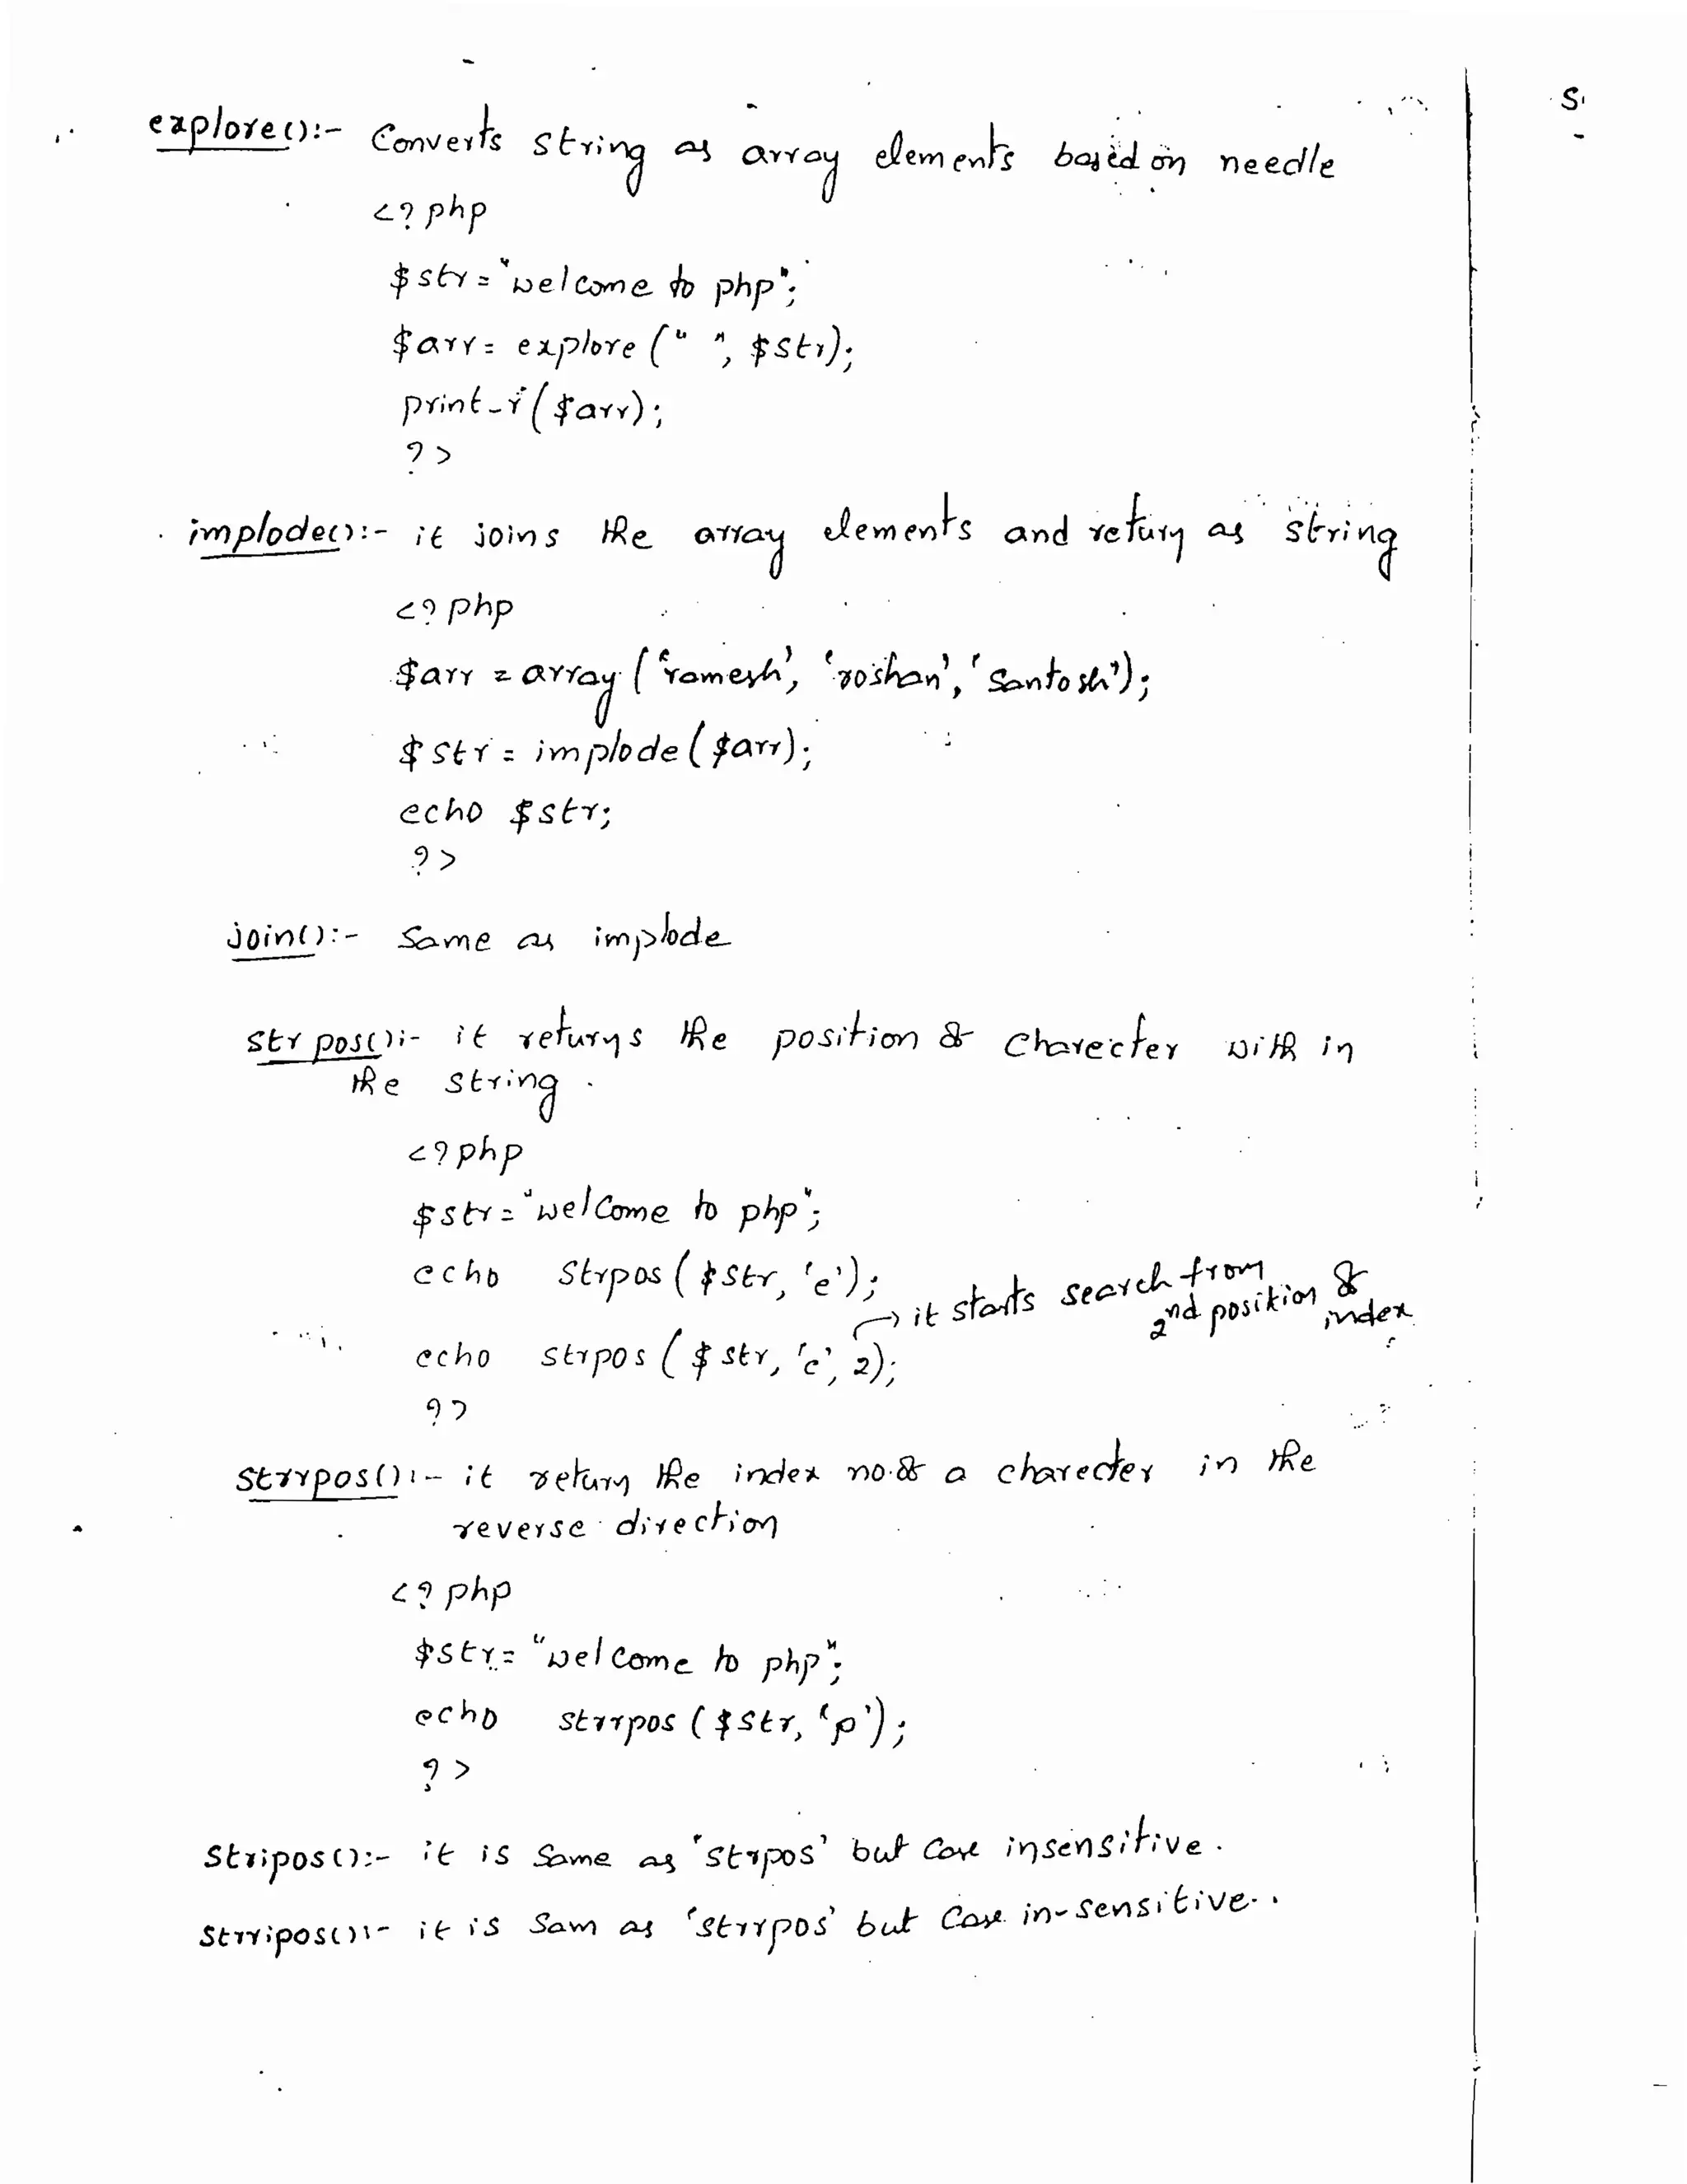 explore():- Converts string as array elements based on needle
<? php
$str = "welcome to php";
$arr = explore (" ", $str);
print_r ($arr);
?>
implode():- it joins the array elements and return as string
<? php
$arr = array ('ramesh', 'roshan', 'Santosh');
$str = implode ($arr);
echo $str;
?>
join():- Same as implode
strpos():- it returns the position of Charecter with in
the string.
<? php
$str = "welcome to php";
echo strpos ($str, 'e');
it starts search from
2nd position of
index
echo strpos ($str, 'c', 2);
?>
strrpos():- it return the index no. of a charecter in the
reverse direction
<? php
$str = "welcome to php";
echo strrpos ($str, 'p');
?>
Stripos():- it is Same as 'strpos' but Case insensitive.
Strripos():- it is Sam as 'strrpos' but Case in-sensitive.